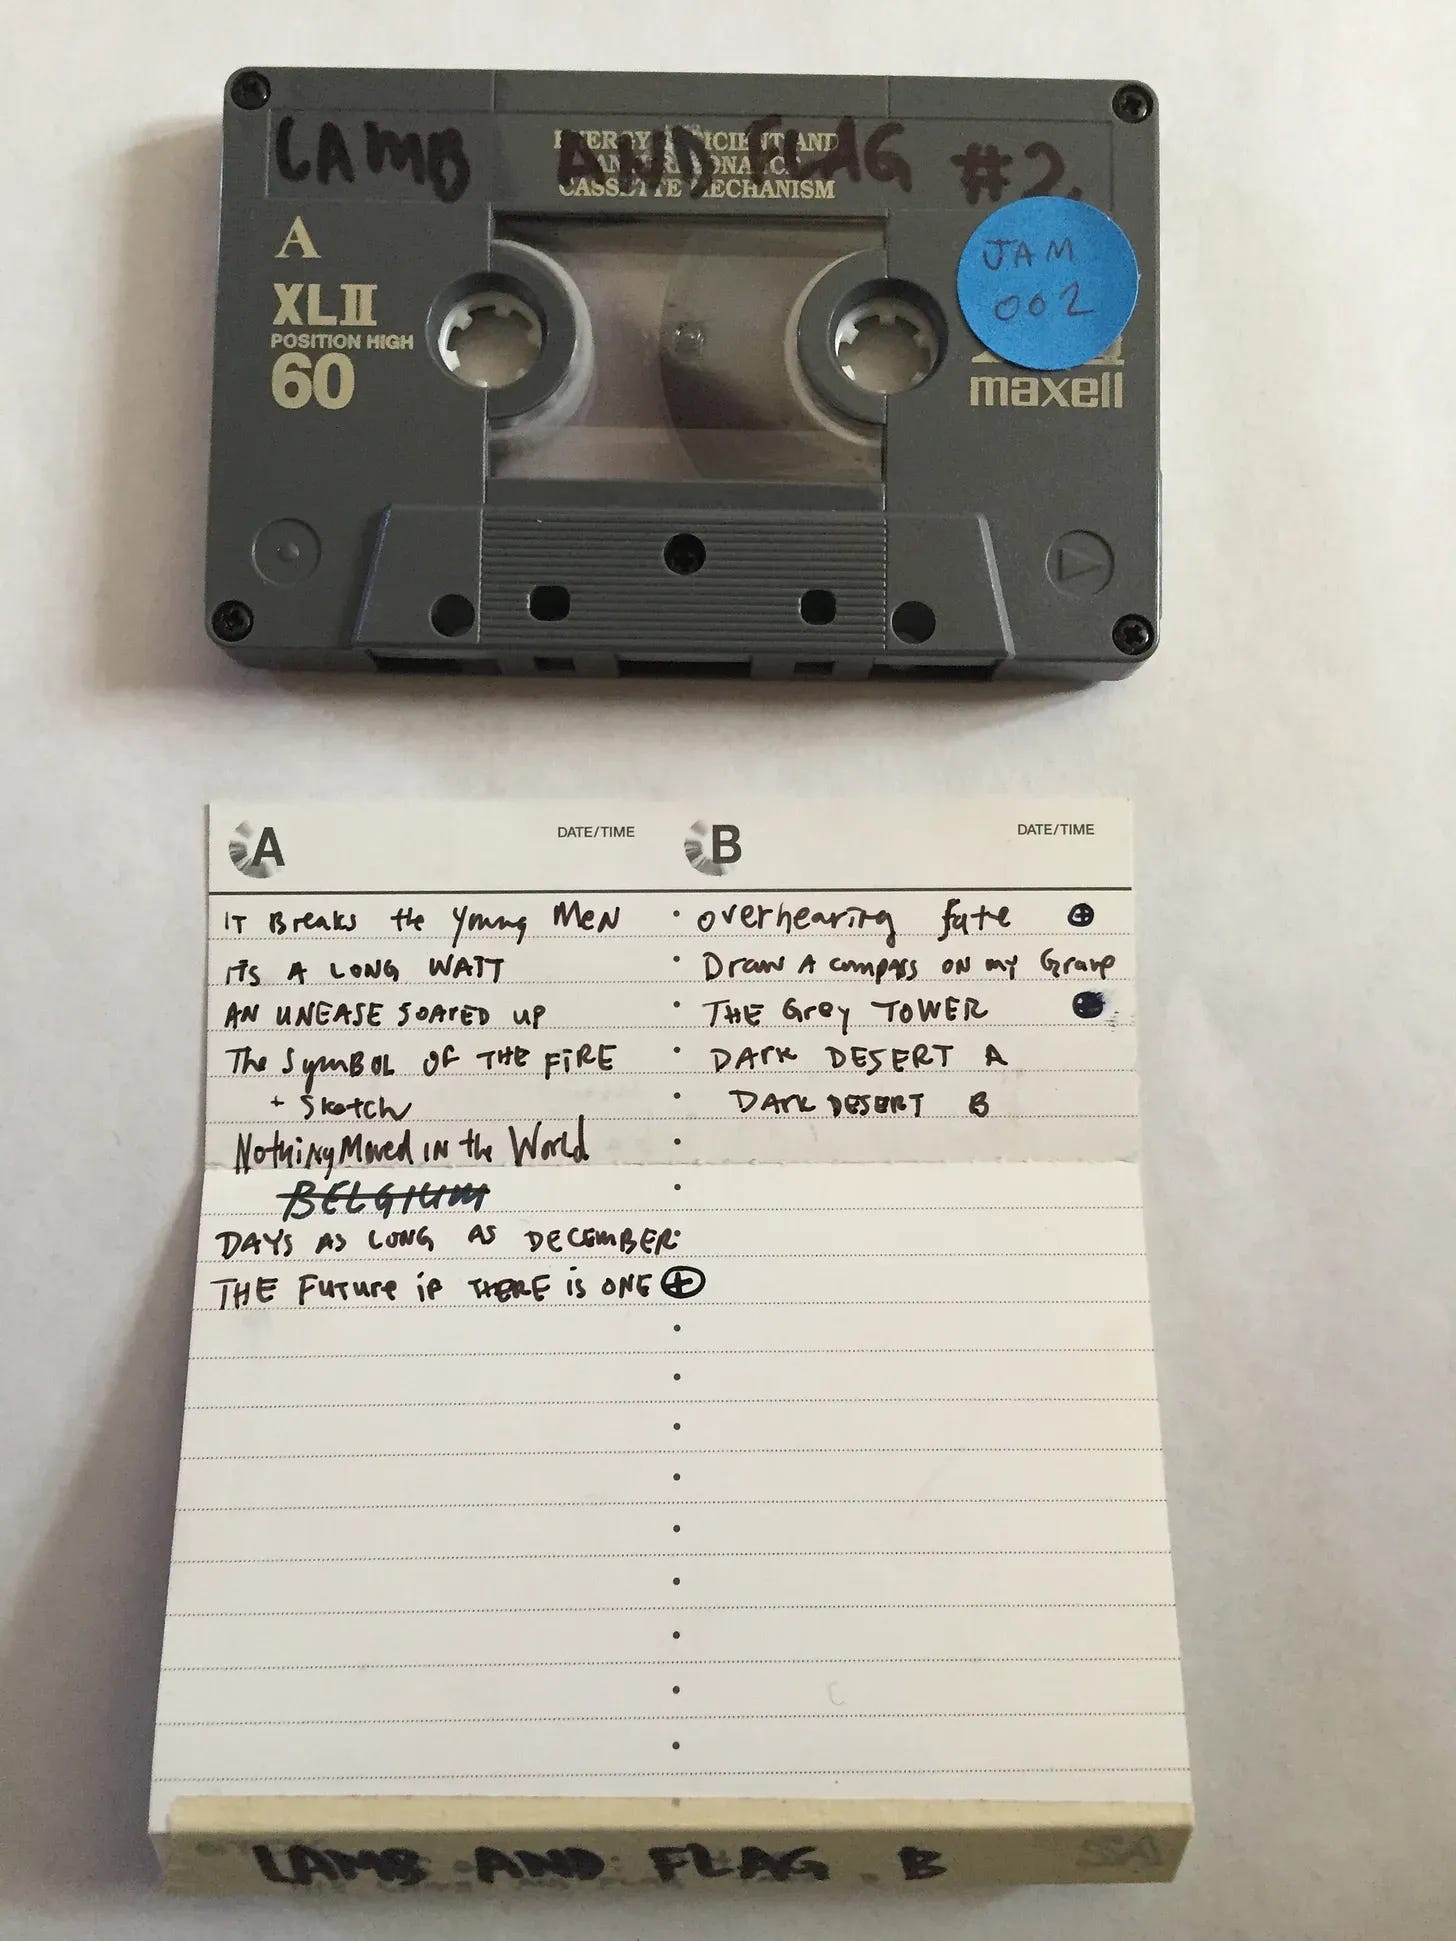 LAMB AND FLAG #2.
ENERGY EFFICIENT AND
ANTI-RESONANCE
CASSETTE MECHANISM
A
XLII
POSITION HIGH
60
JAM
002
maxell
A DATE/TIME
B DATE/TIME
IT Breaks the Young MeN
ITS A LONG WAIT
AN UNEASE SOARED UP
The SymBOL OF THE FIRE
+ Sketch
Nothing Moved IN the World
BELGIUM
DAYS AS LONG AS DECEMBER
THE Future if THERE IS ONE
overhearing fate
Draw A compass ON my Grave
THE Grey TOWER
DARK DESERT A
DARK DESERT B
LAMB AND FLAG . B